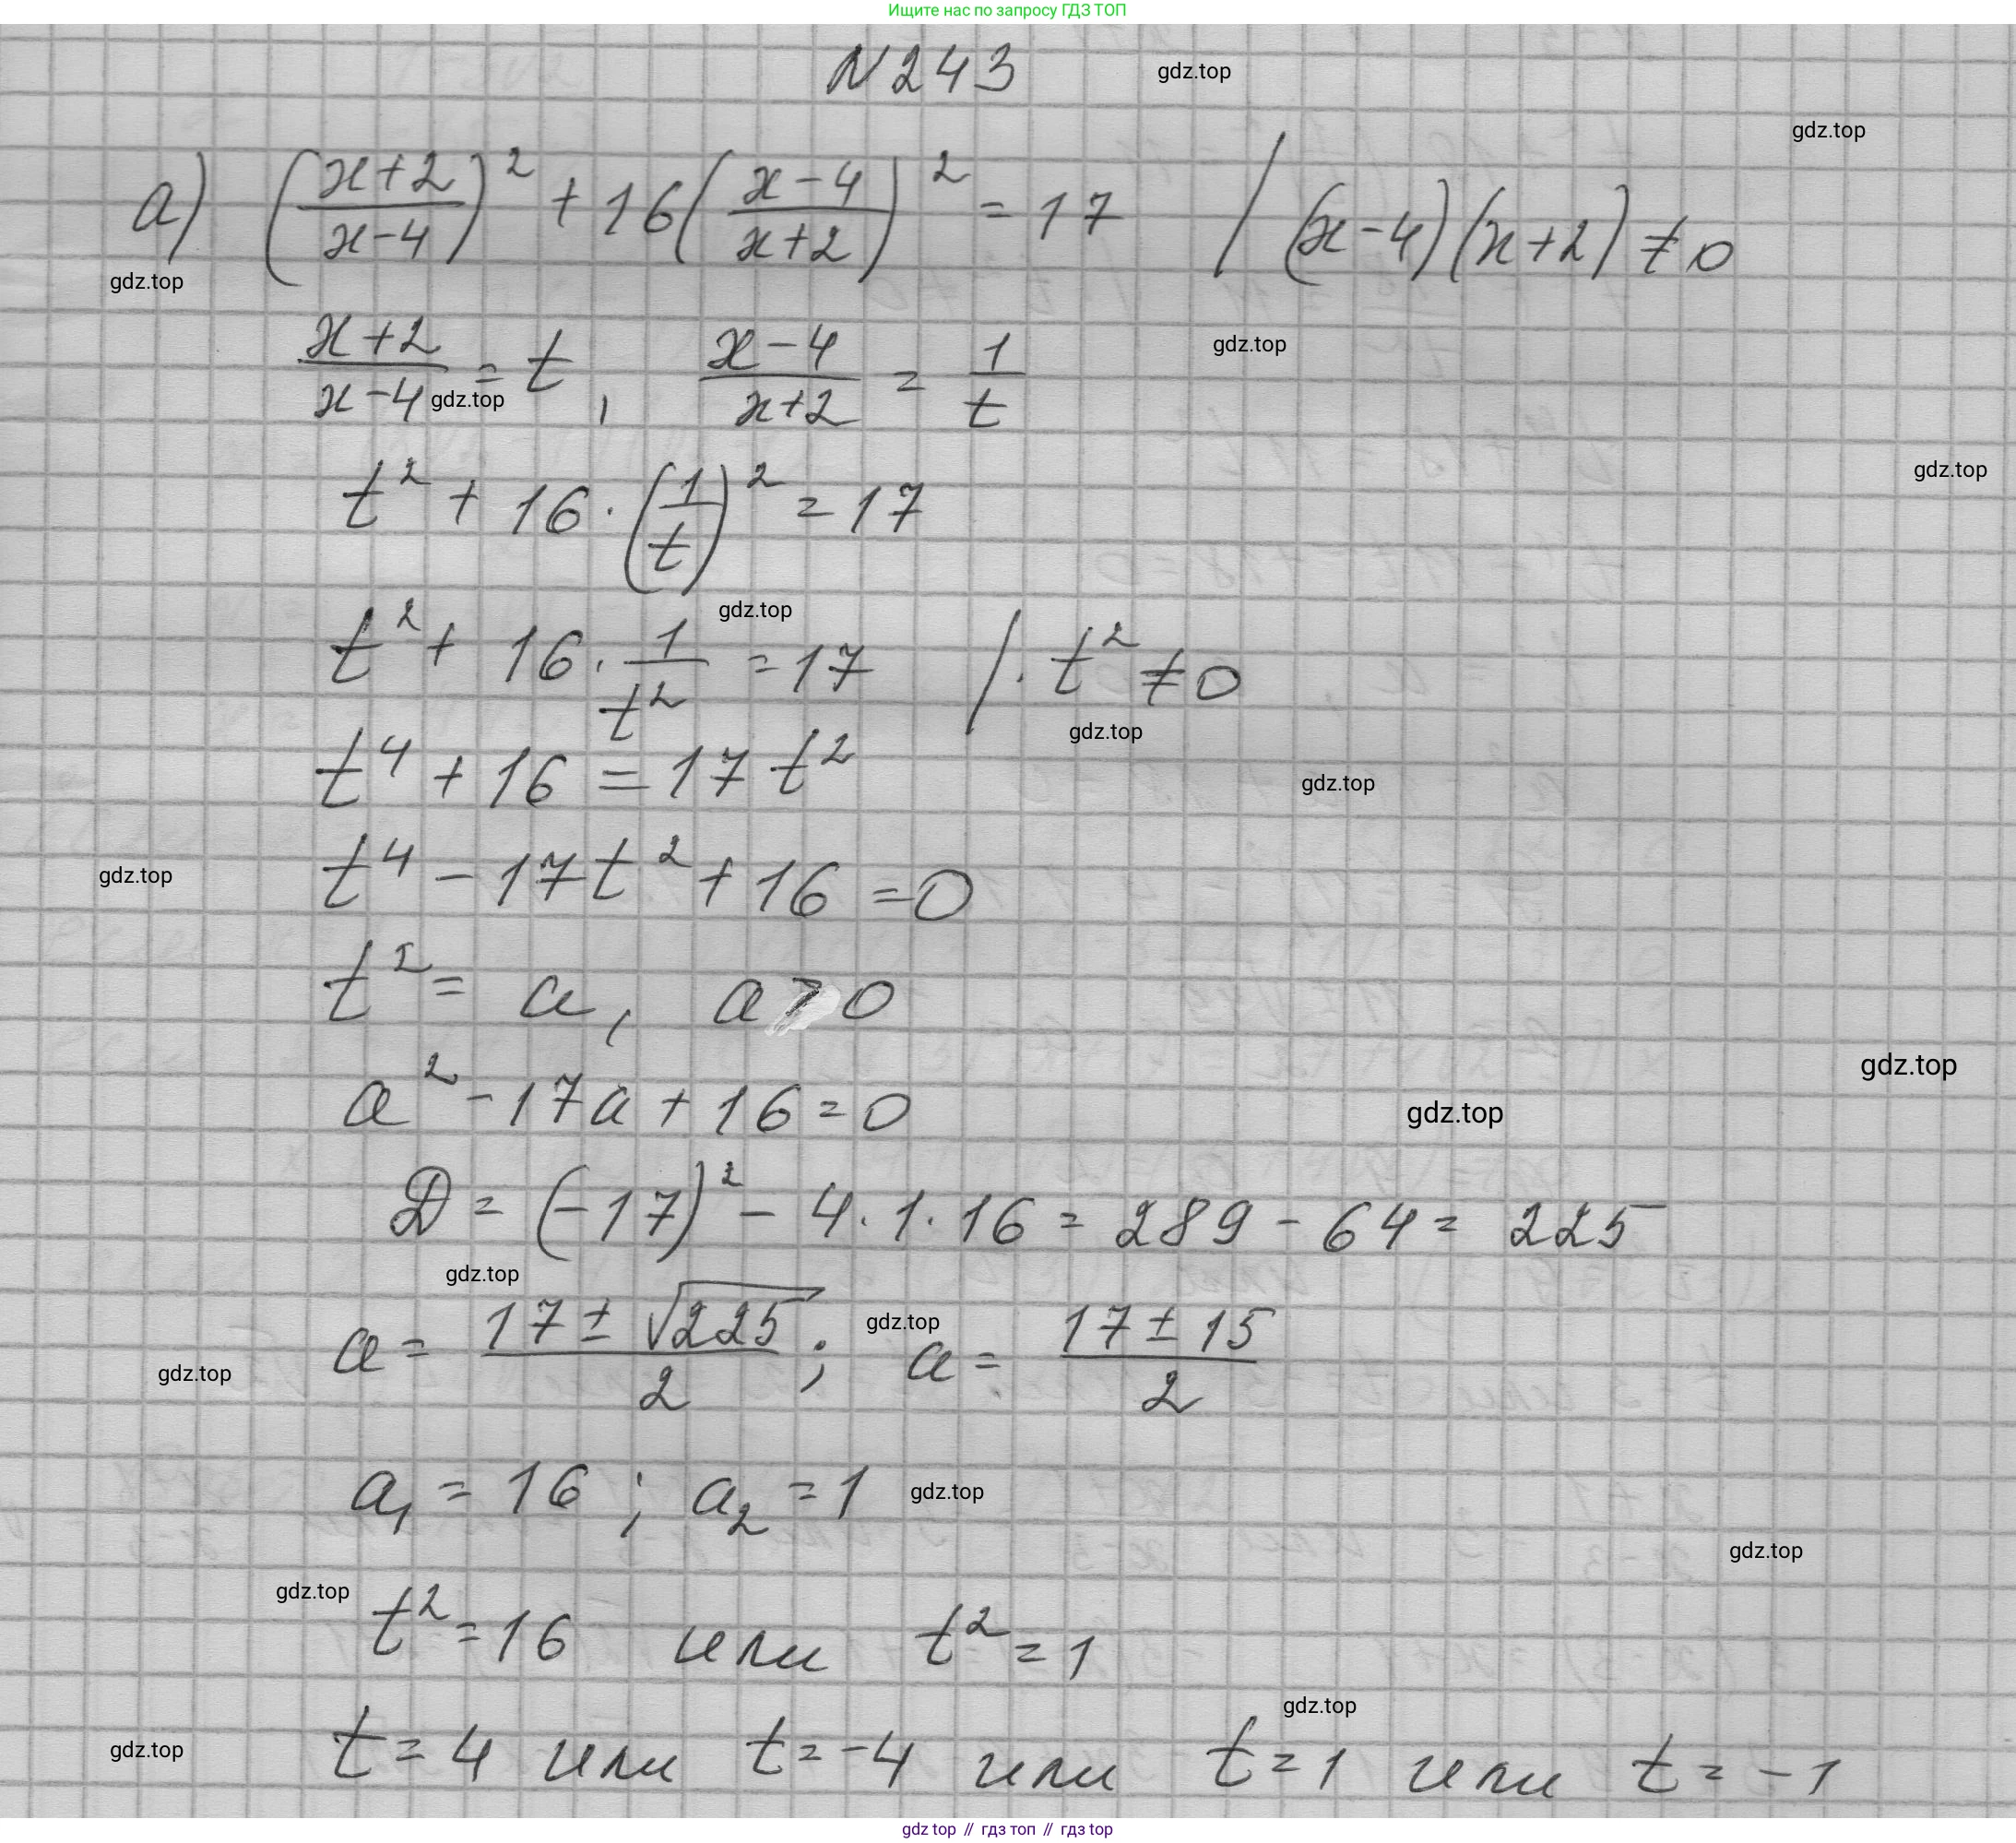 Ищите нас по запросу ГДЗ ТОП
N 243 gdz.top
gdz.top
а) ((x+2)/(x-4))² + 16((x-4)/(x+2))² = 17 / (x-4)(x+2) ≠ 0
gdz.top
(x+2)/(x-4) = t, (x-4)/(x+2) = 1/t gdz.top
gdz.top
gdz.top
t² + 16 · (1/t)² = 17
gdz.top
t² + 16 · 1/t² = 17 / · t² ≠ 0
gdz.top
t⁴ + 16 = 17 t²
gdz.top
gdz.top
t⁴ - 17t² + 16 = 0
t² = a, a > 0
gdz.top
a² - 17a + 16 = 0 gdz.top
D = (-17)² - 4 · 1 · 16 = 289 - 64 = 225
gdz.top
gdz.top
a = (17 ± √225)/2 ; a = (17 ± 15)/2
gdz.top
a₁ = 16 ; a₂ = 1 gdz.top
gdz.top
gdz.top
t² = 16 или t² = 1
gdz.top
gdz.top
t = 4 или t = -4 или t = 1 или t = -1
gdz top // гдз топ // гдз top